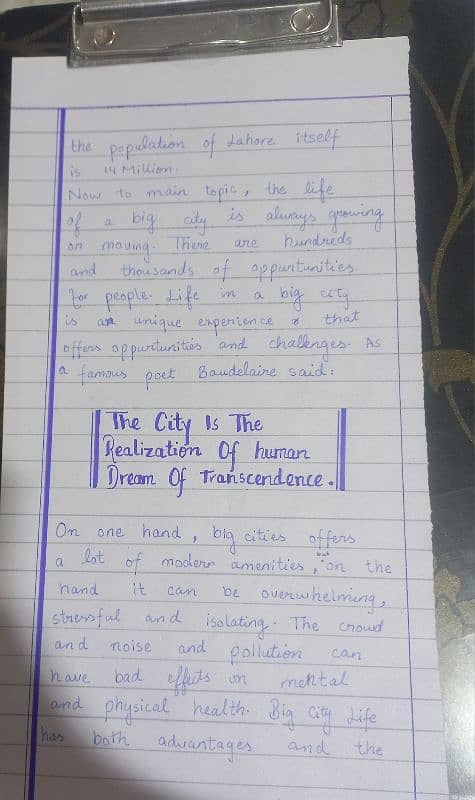 the population of Lahore itself
is 14 Million.
Now to main topic, the life
of a big city is always growing
on moving. There are hundreds
and thousands of oppurtunities
for people. Life in a big city
is an unique experience that
offers oppurtunities and challenges. As
a famous poet Baudelaire said:
The City Is The
Realization Of human
Dream Of Transcendence.
On one hand, big cities offers
a lot of modern amenities, on the
hand it can be overwhelming,
stressful and isolating. The crowd
and noise and pollution can
have bad effects on mental
and physical health. Big City Life
has both advantages and the